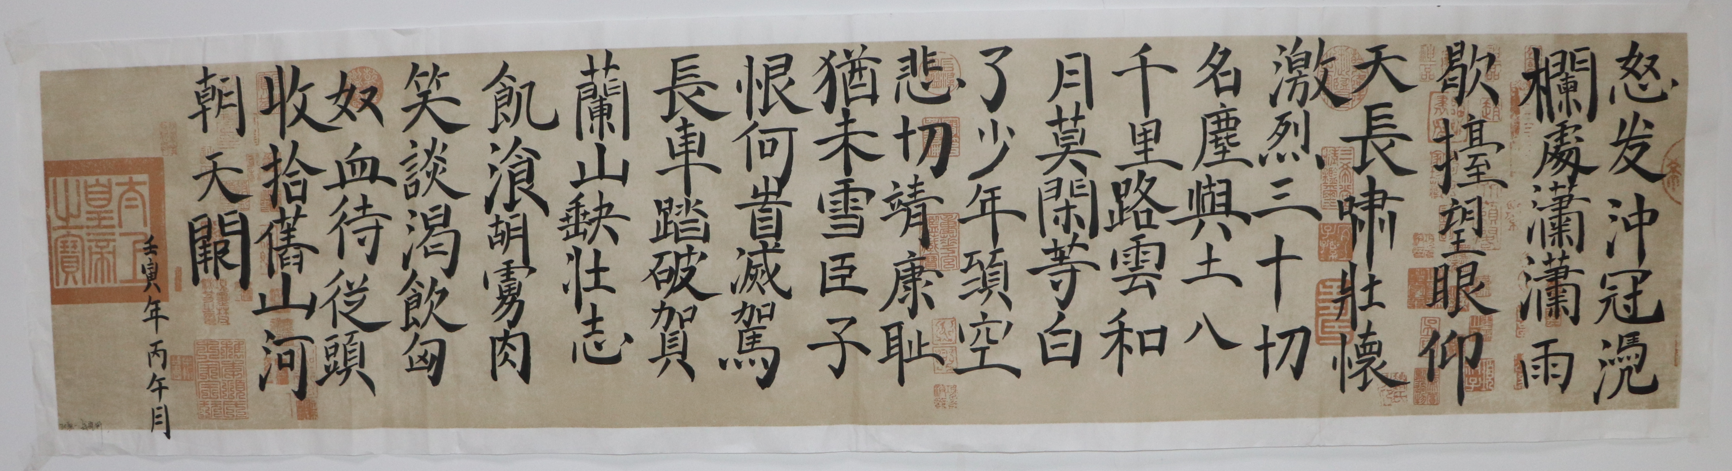 怒发沖冠凴
欄處瀟瀟雨
歇擡望眼仰
天長嘯壯懷
激烈三十切
名塵與土八
千里路雲和
月莫閑等白
了少年頭空
悲切靖康耻
猶未雪臣子
恨何峕滅駕
長車踏破賀
蘭山缺壮志
飢湌胡虜肉
笑談渴飲匈
奴血待從頭
收拾舊山河
朝天闕
壬寅年丙午月
太上皇帝之寶